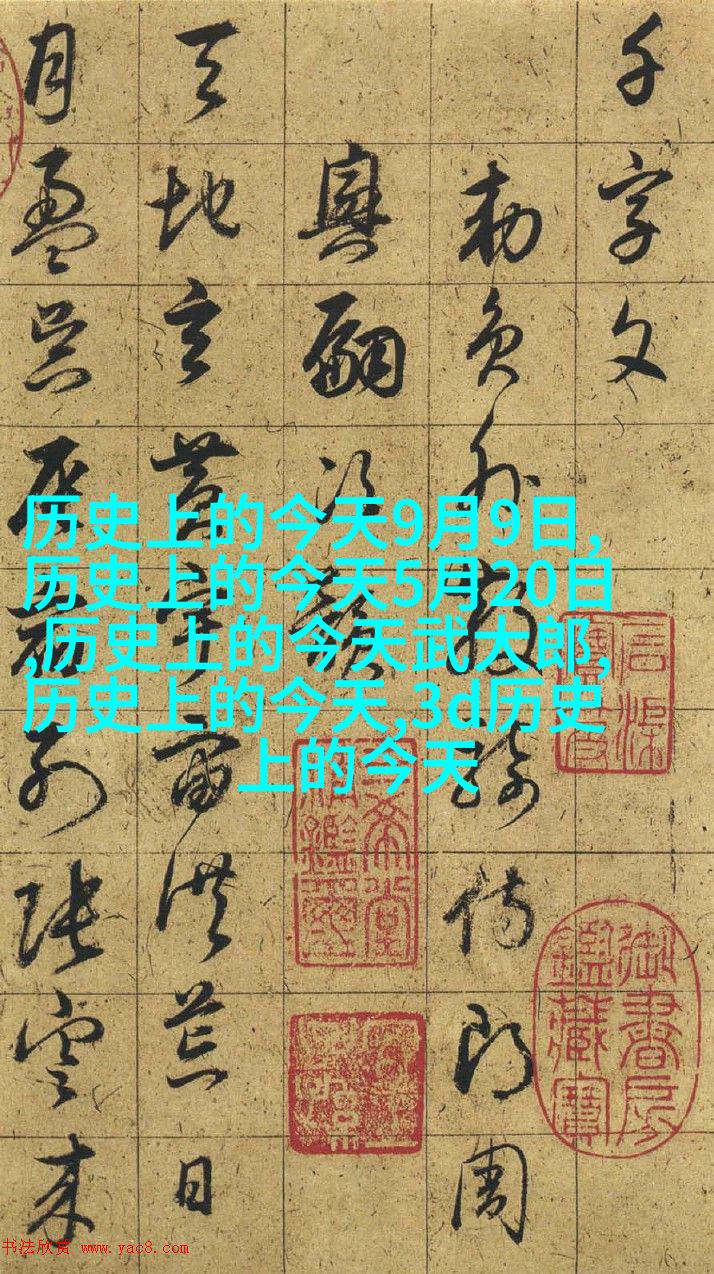 千字文
勅員外散騎侍郎周
興嗣次韻
天地玄黃宇宙洪荒日
月盈昃辰宿列張寒來
历史上的今天9月9日,
历史上的今天5月20日
,历史上的今天武大郎,
历史上的今天,3d历史
上的今天
三希堂
精鑑璽
御書房
鑑藏寶
书法欣赏 www.yac8.com